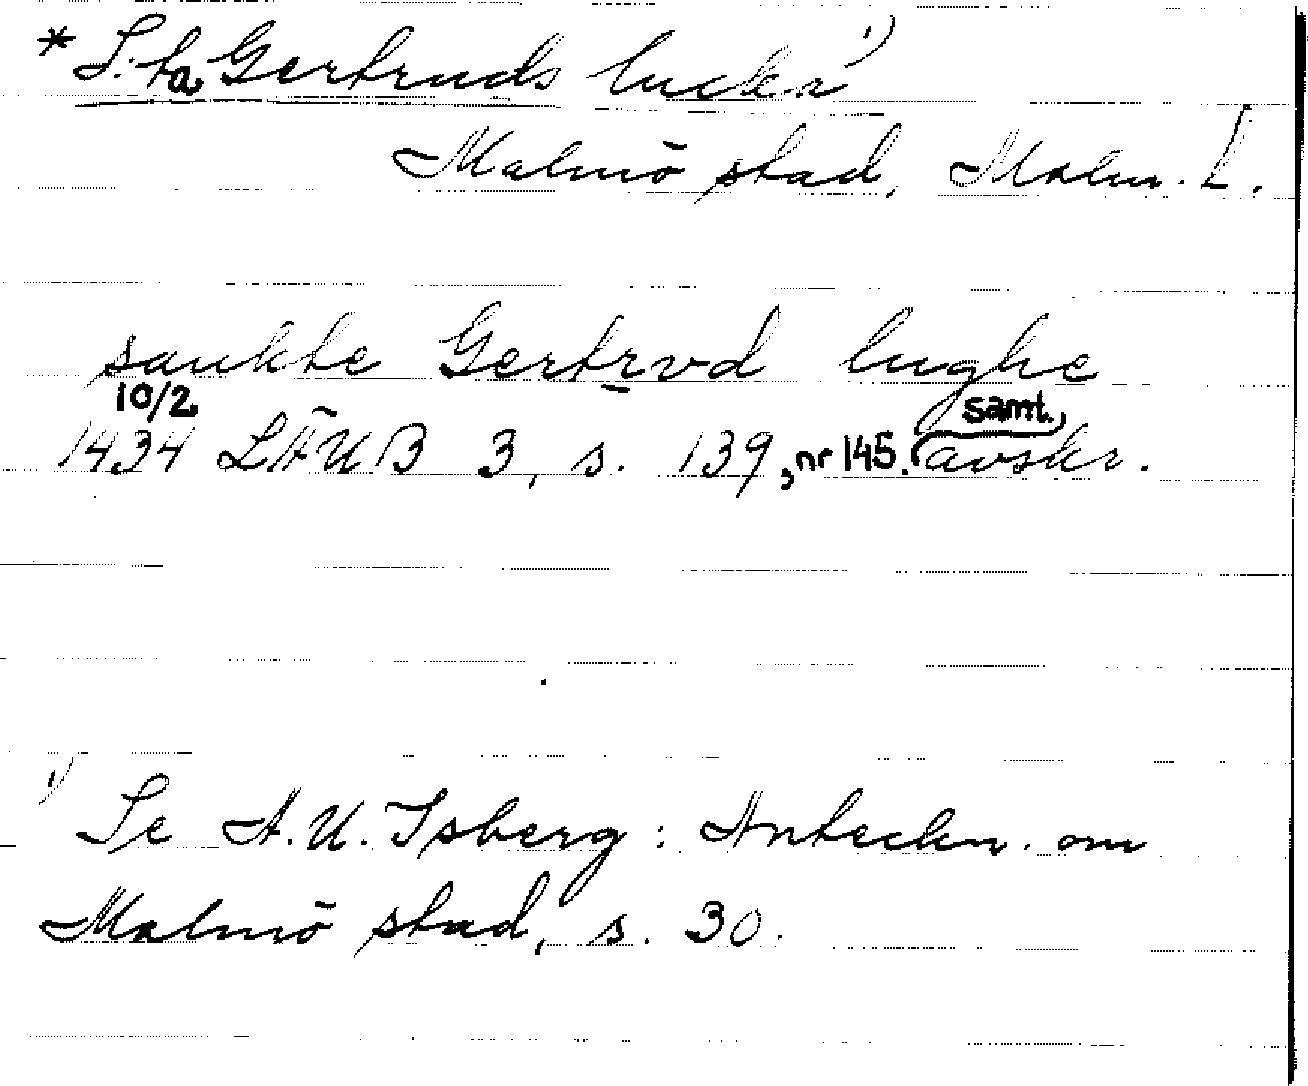 * S:ta Gertruds lucka 1)
Malmö stad, Malm. L.
sankte Gertrvd lughe
10/2 samt.
1434 LÄUB 3, s. 139, nr 145. avskr.
1) Se A. U. Isberg: Anteckn. om
Malmö stad, s. 30.